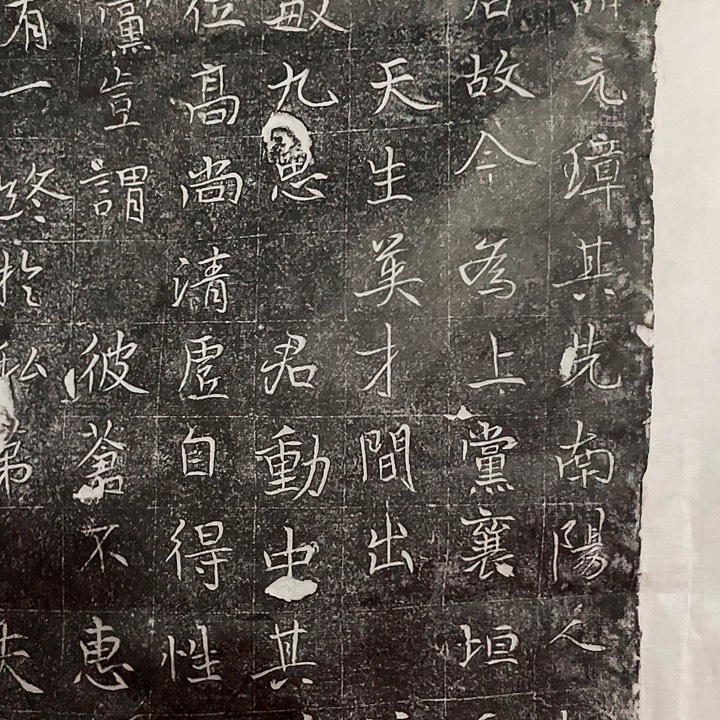 元璋其先南陽人
故今為上黨襄垣
天生英才間出
敏九思君動中其
位高尚清虛自得性
黨豈謂彼蒼不惠
有一終於私第